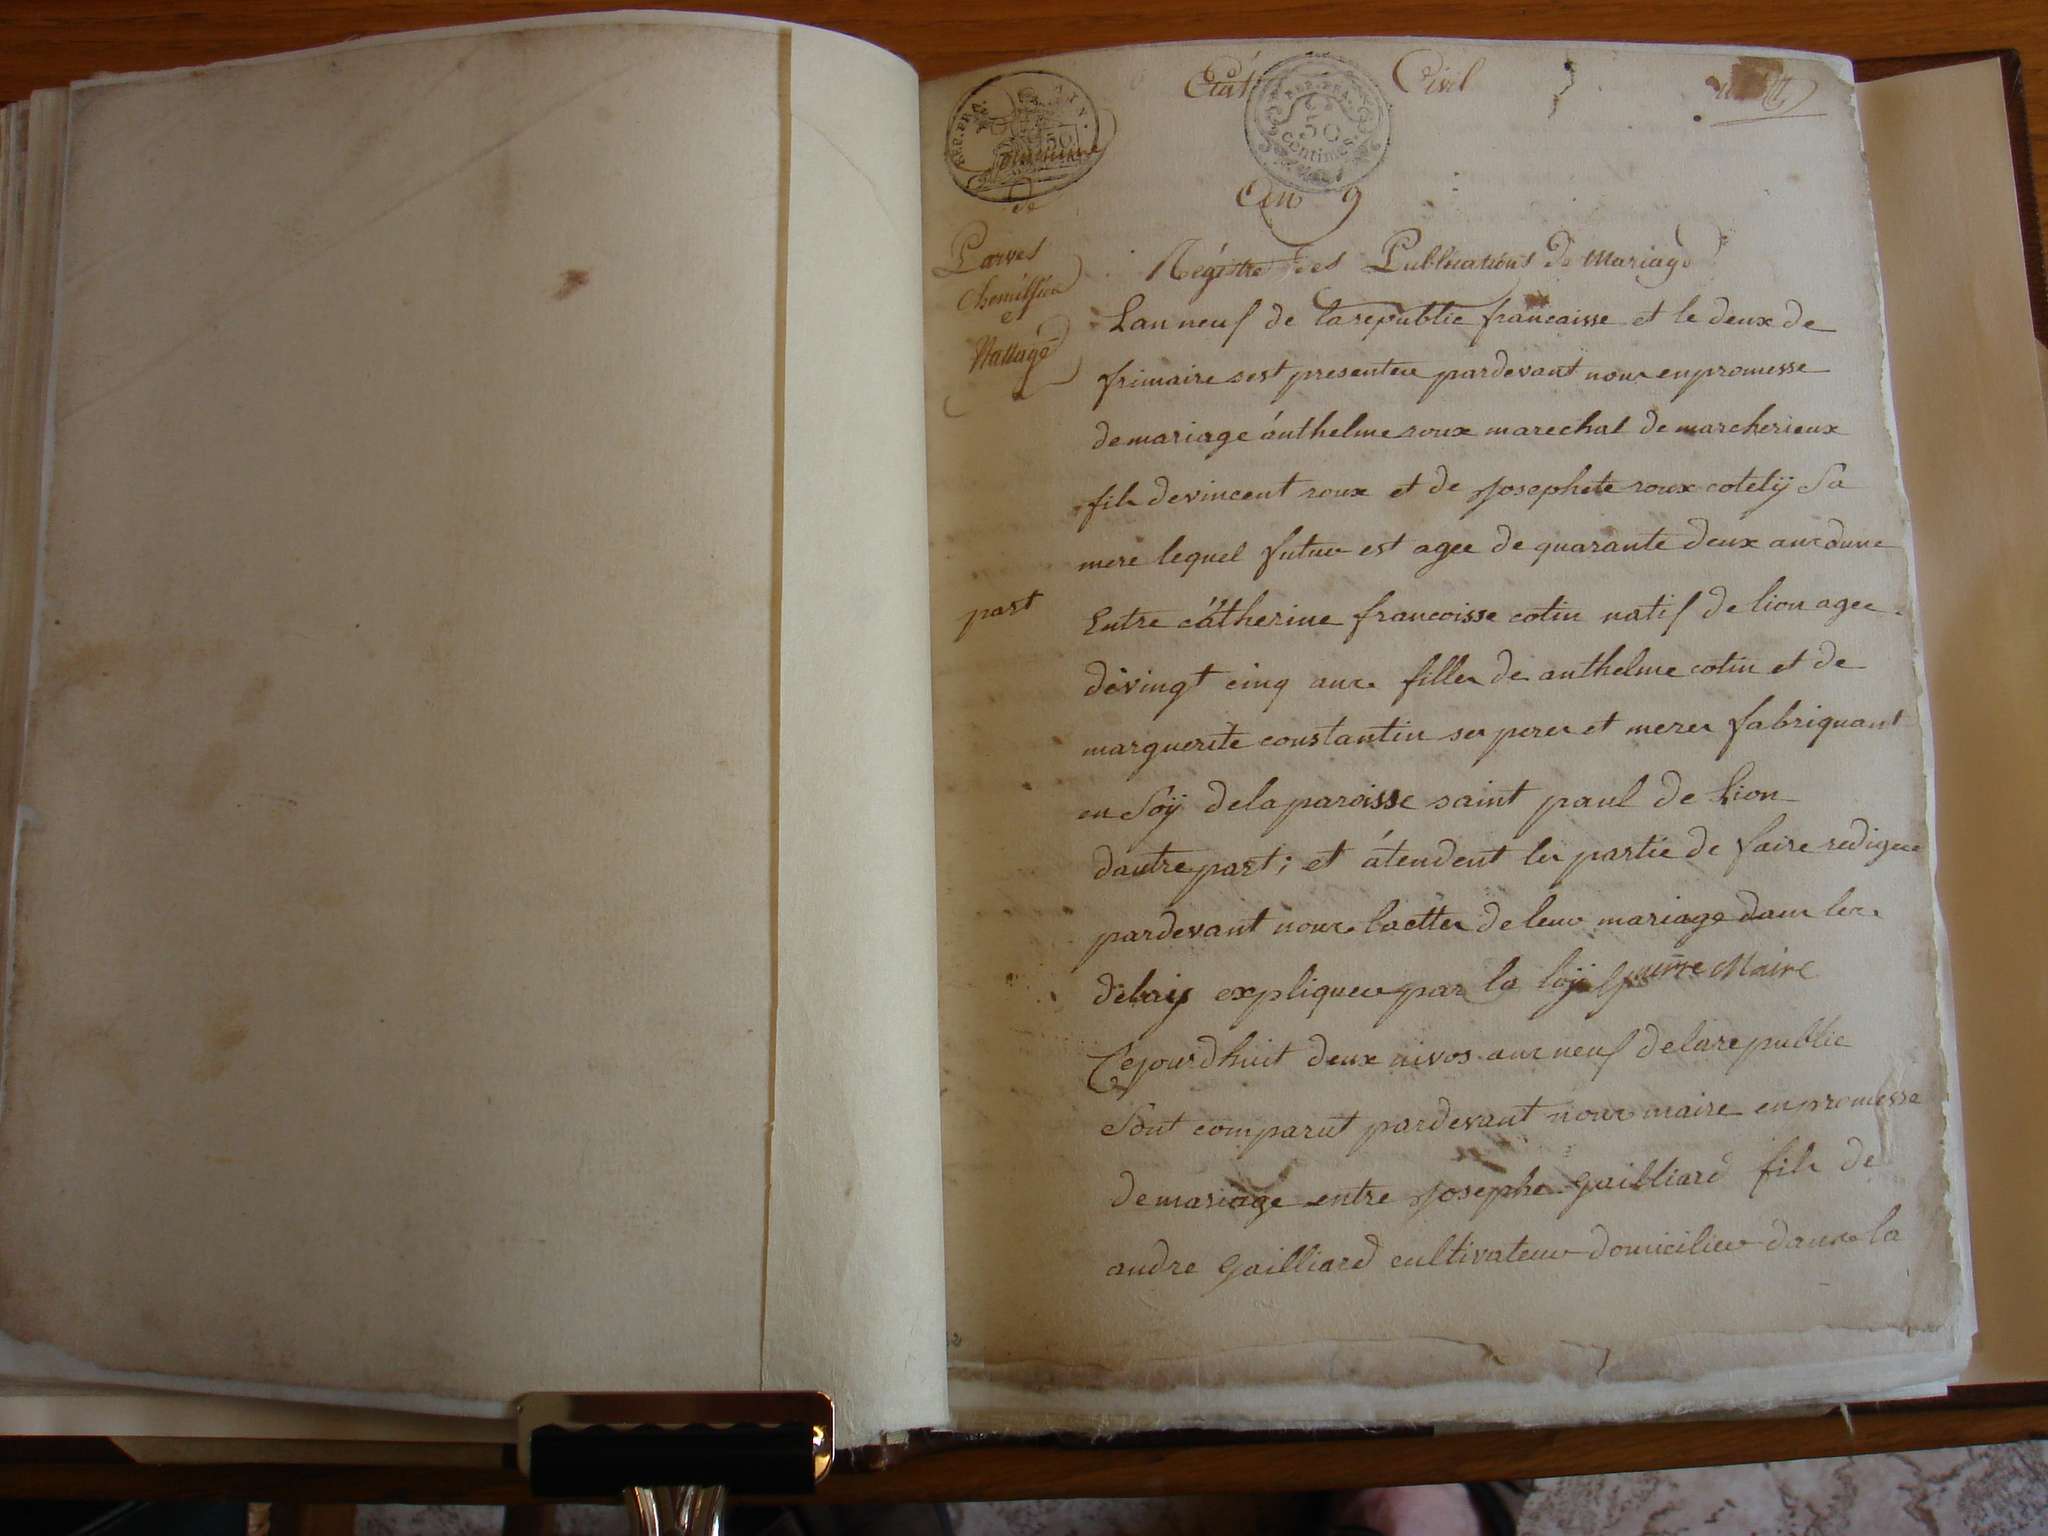 Etat Civil
REP. FRA.
50
centimes
REP. FRA.
Commune
de
An 9
Parves
Chemillieu
et
Nattage
Régistre des Publications de Mariage
Lan neuf de la republic francaisse et le deux de
frimaire sest presenter pardevant nous en promesse
de mariage ánthelme roux marechal de marcherieux
fils de vincent roux et de Josephete roux cotelÿ Sa
mere lequel futur est agee de quarante deux ans dune
part
Entre cátherine francoisse cotin natif de lion agee
de vingt cinq ans filles de anthelme cotin et de
marguerite constantin ses peres et meres fabriquant
en Soÿ de la paroisse saint paul de Lion
dautre part; et átendent les partie de faire rediger
pardevant nous lactes de leur mariage dans les
délais expliquer par la loÿ maire
Cejourdhuit deux nivos ans neuf de la republic
Sont comparut pardevant nous maire en promesse
de mariage entre Josephe gailliard fils de
andre gailliard cultivateur domicilier dans la